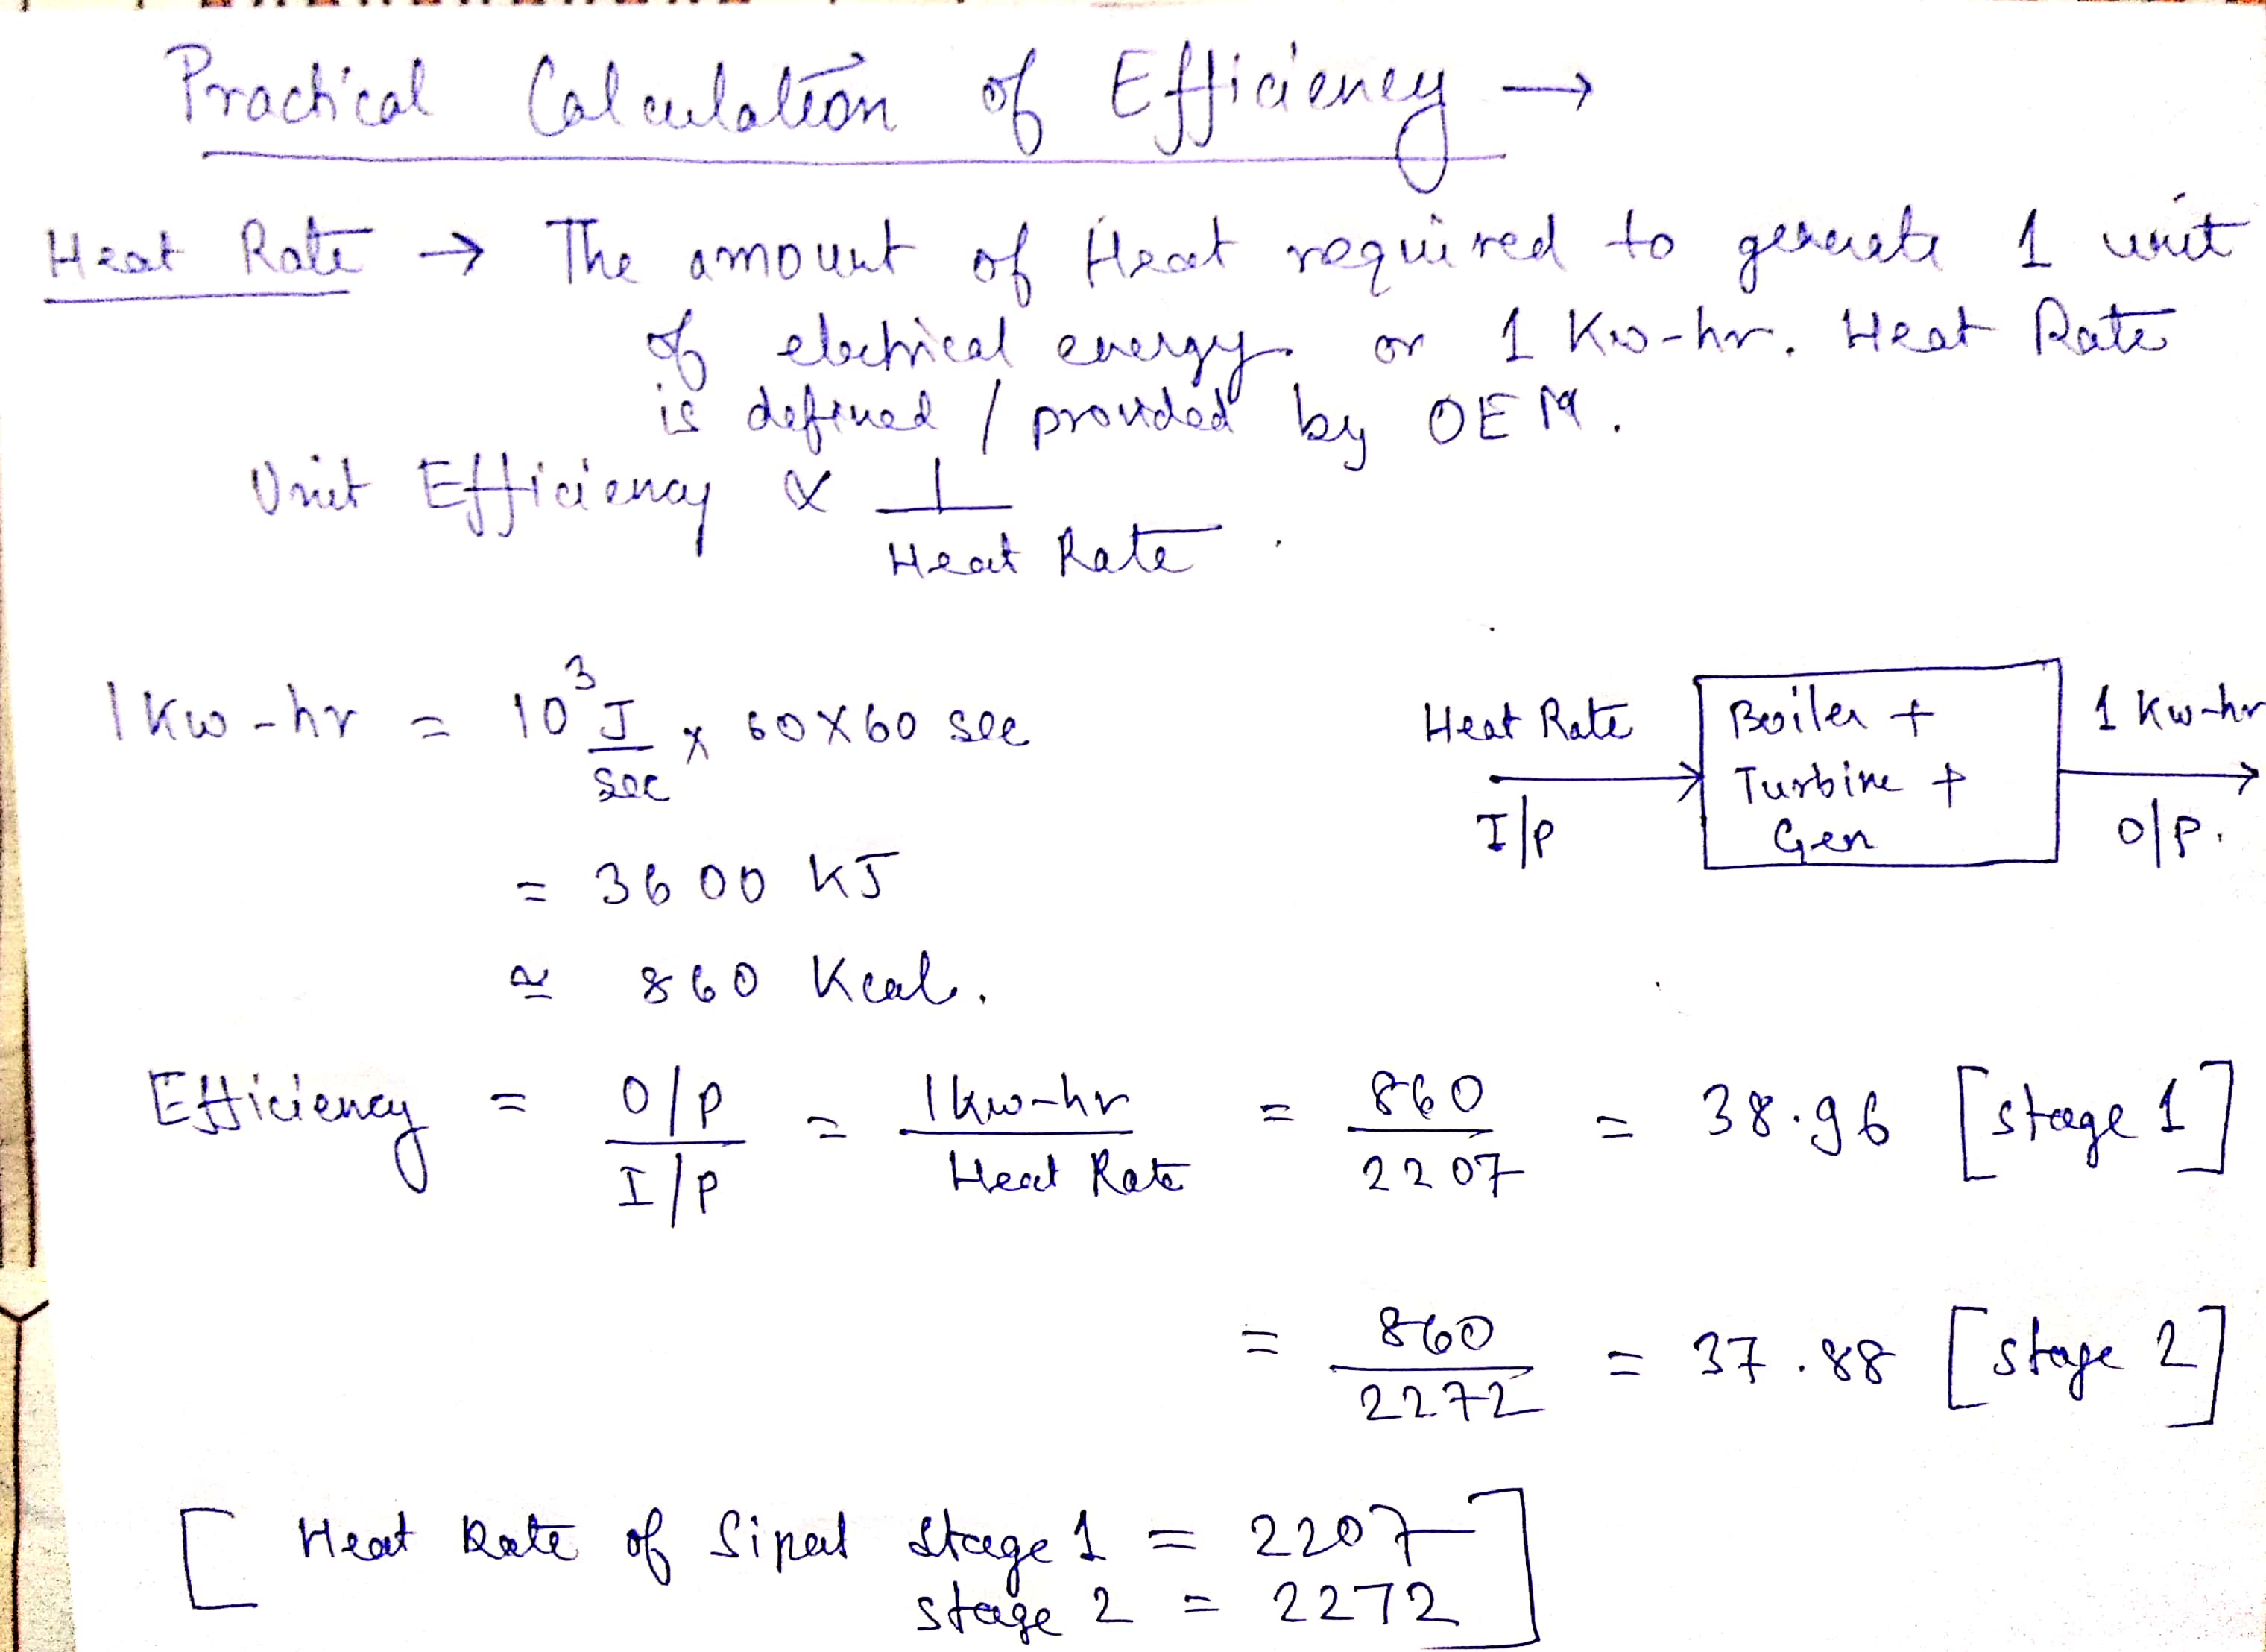 Practical Calculation of Efficiency →
Heat Rate → The amount of Heat required to generate 1 unit
of electrical energy or 1 Kw-hr. Heat Rate
is defined / provided by OEM.
Unit Efficiency ∝ 1 / Heat Rate .
1 Kw-hr = 10³ J/sec × 60×60 sec
= 3600 KJ
≅ 860 Kcal.
Heat Rate
I/P
Boiler +
Turbine +
Gen
1 Kw-hr
O/P.
Efficiency = O/P / I/P = 1kw-hr / Heat Rate = 860 / 2207 = 38.96 [stage 1]
= 860 / 2272 = 37.88 [stage 2]
[ Heat Rate of Sipat stage 1 = 2207
stage 2 = 2272 ]